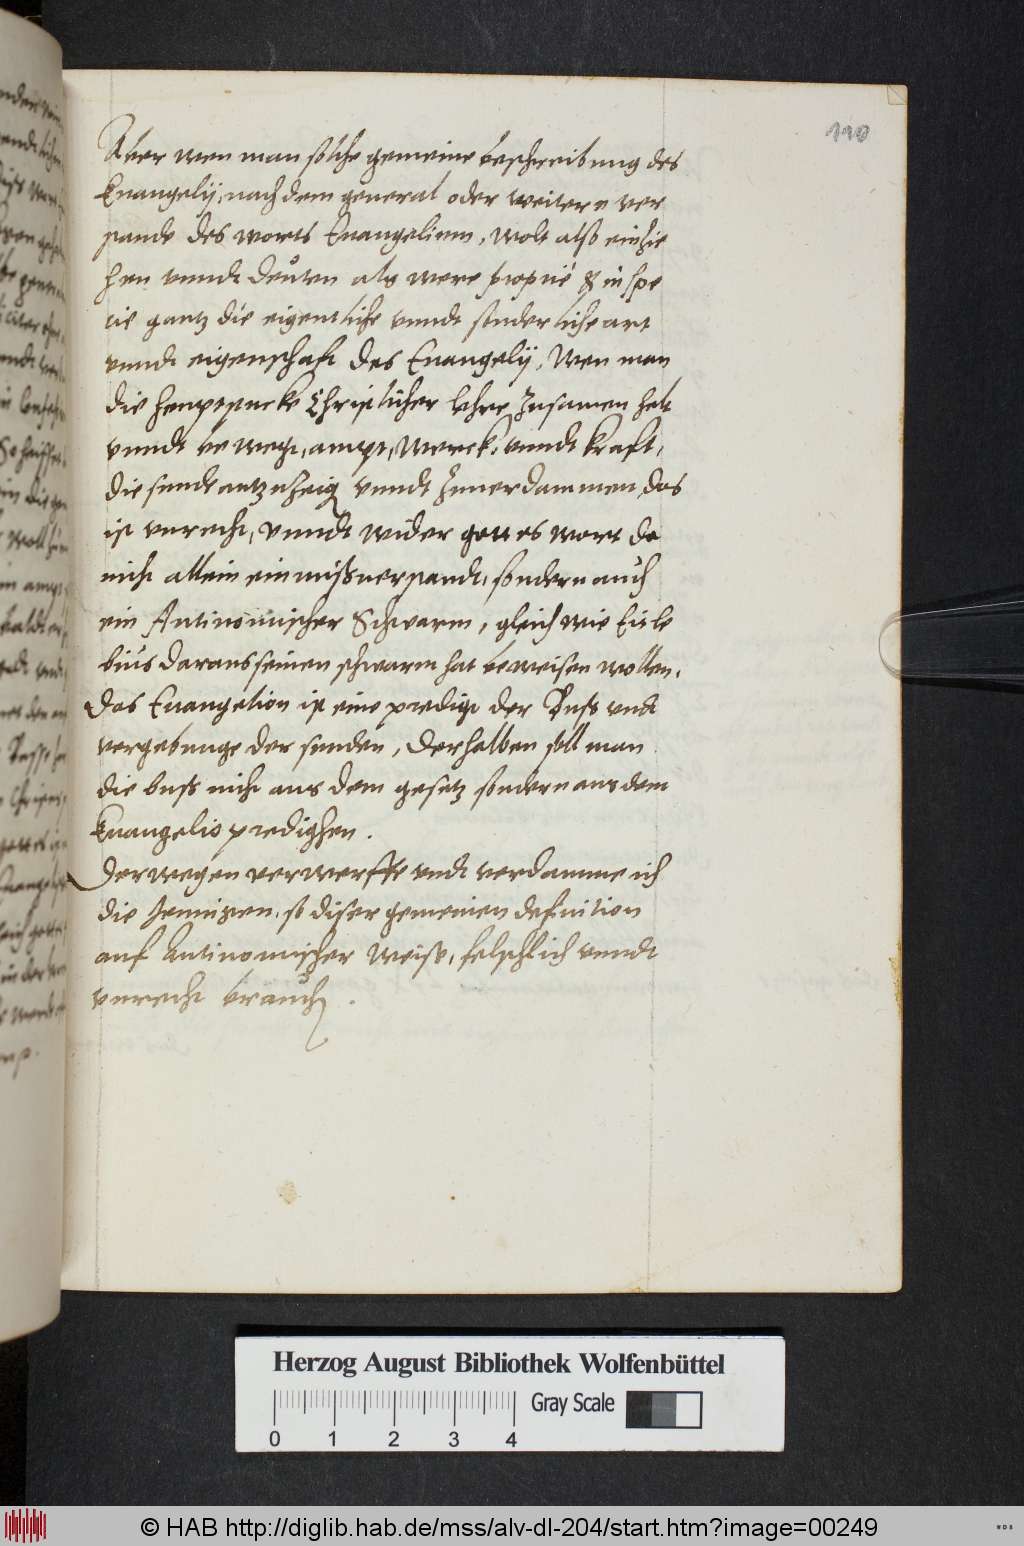 110
Aber wen man solche gemeine beschreibung des
Euangelij, nach dem general oder weitern ver
stande des worts Euangelium, wolt also einzie
hen vnndt deuten als were proprié & in spe
cie gantz die eigentliche vnndt sonderliche art
vnndt eigenschaft des Euangelij, Wen man
die heuptstucke Christlicher lehre zusamen helt
vnndt bewegt, ampt, werck, vnndt kraft,
die sunde antzuzeig vnndt zuuerdammen, das
ist vnrecht, vnndt wider gottes wort da
nicht allein ein mißuerstandt, sondern auch
ein Antinomischer Schwarm, gleich wie Eisle
bius daraus seinen schwarm hat beweisen wollen.
Das Euangelion ist eine predigt der Buss vnd
vergebunge der sunden, Derhalben soll man
die buss nicht aus dem gesetz sondern aus dem
Euangelio predighen.
Derwegen verwerffe vndt verdamme ich
die jennigen, so diser gemeinen definition
auf Antinomischer weise, felschlich vnndt
vnrecht brauch.
Herzog August Bibliothek Wolfenbüttel
Gray Scale
0 1 2 3 4
© HAB http://diglib.hab.de/mss/alv-dl-204/start.htm?image=00249